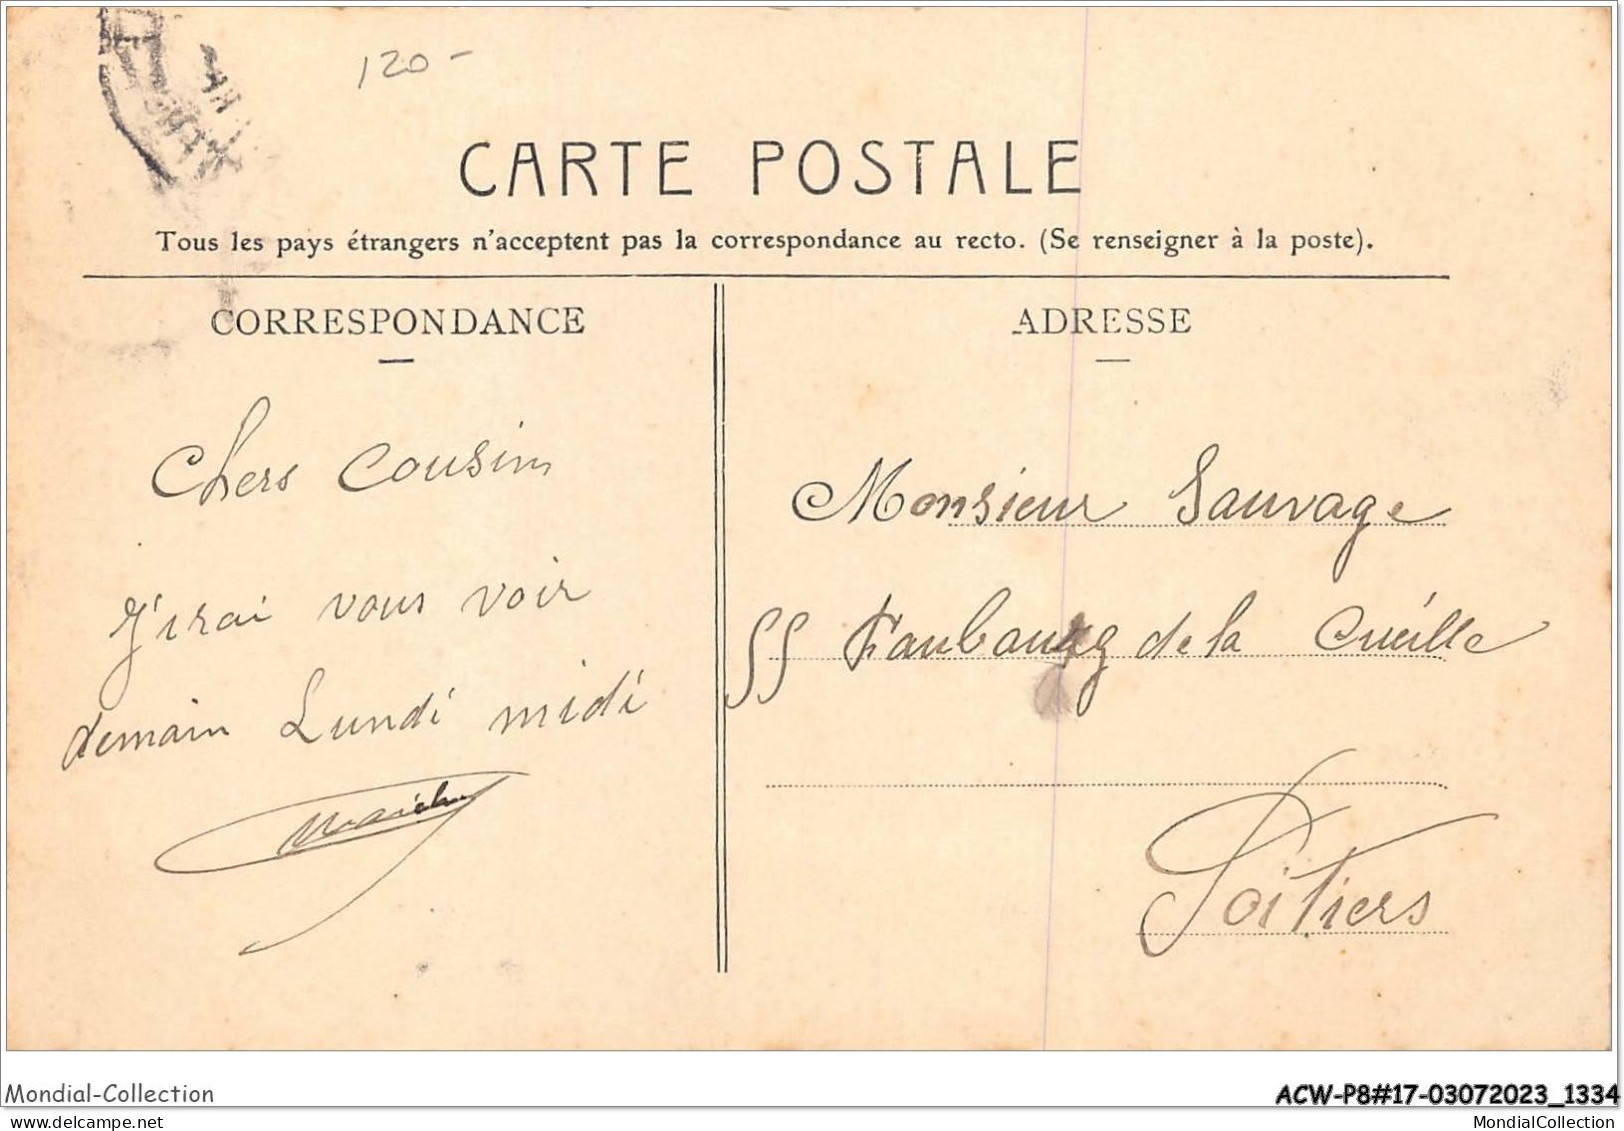 120-
CARTE POSTALE
Tous les pays étrangers n'acceptent pas la correspondance au recto. (Se renseigner à la poste).
CORRESPONDANCE
Chers Cousins
J'irai vous voir
demain Lundi midi
ADRESSE
Monsieur Sauvage
55 Faubourg de la Cueille
Poitiers
Mondial-Collection
ACW-P8#17-03072023_1334
MondialCollection.com
MondialCollection